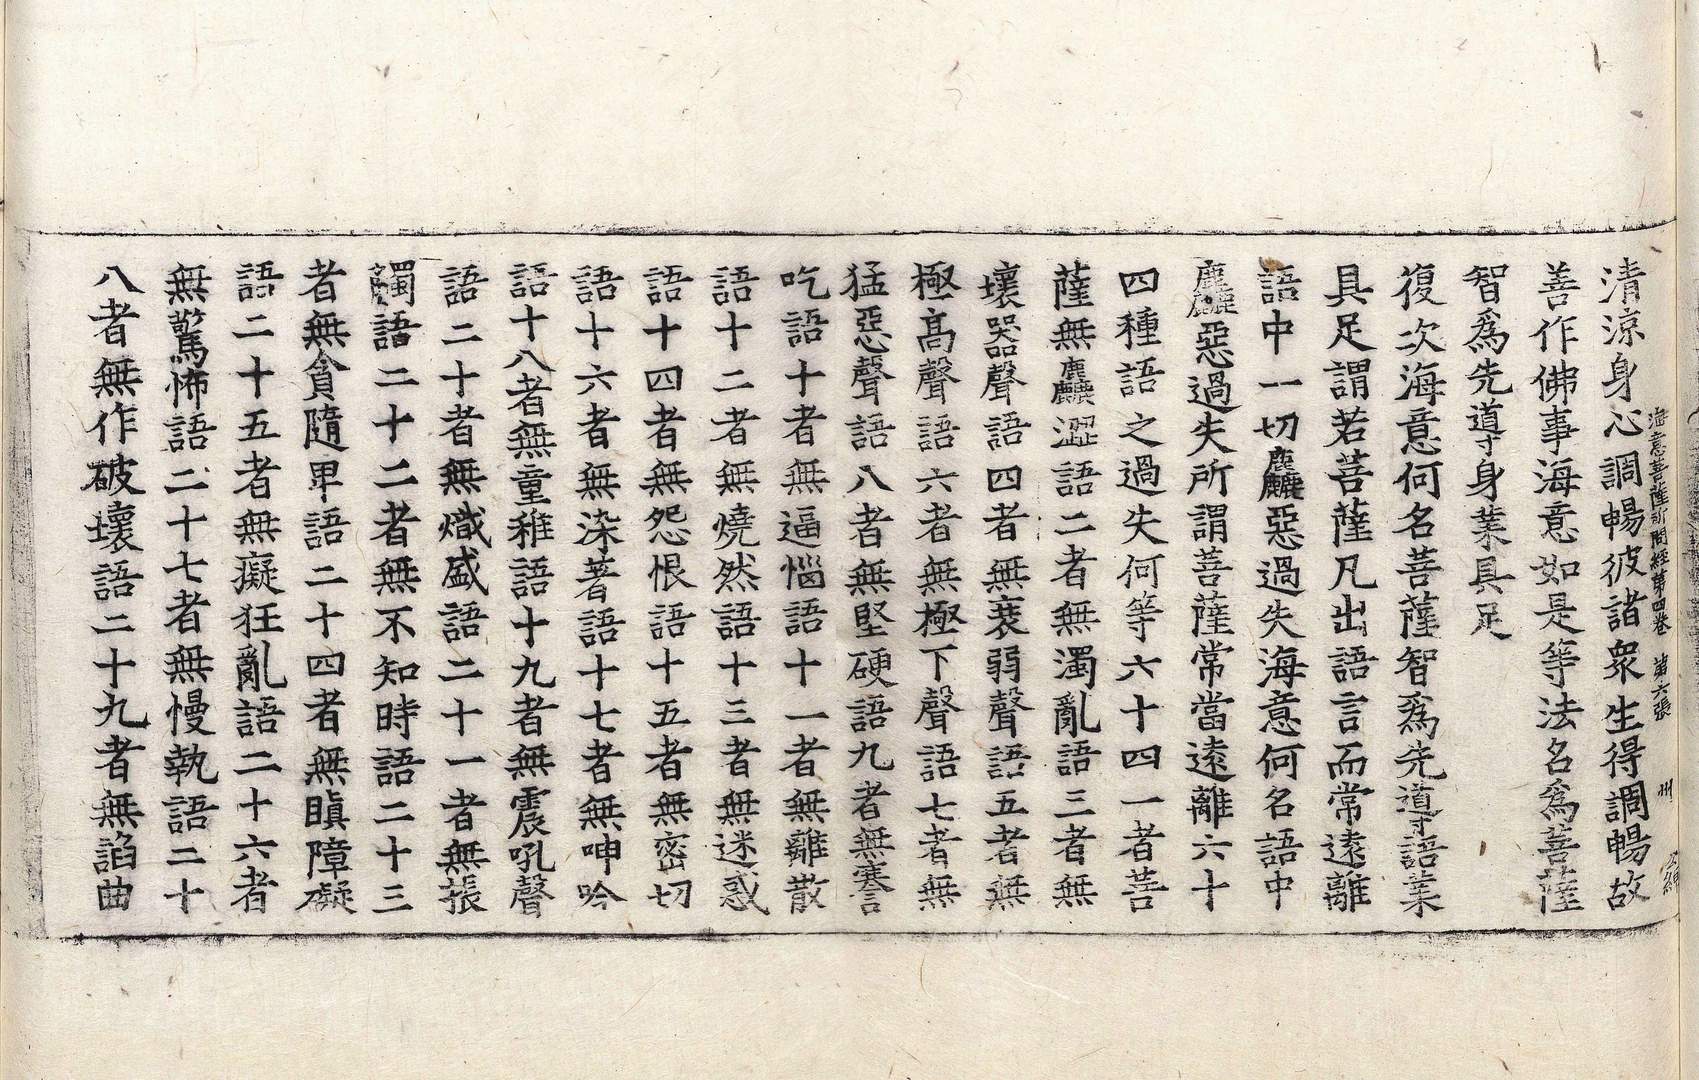 海意菩薩所問經第四卷　第六張　州
清涼身心調暢彼諸衆生得調暢故
善作佛事海意如是等法名爲菩薩
智爲先導身業具足
復次海意何名菩薩智爲先導語業
具足謂若菩薩凡出語言而常遠離
語中一切麤惡過失海意何名語中
麤惡過失所謂菩薩常當遠離六十
四種語之過失何等六十四一者菩
薩無麤澀語二者無濁亂語三者無
壞器聲語四者無衰弱聲語五者無
極高聲語六者無極下聲語七者無
猛惡聲語八者無堅硬語九者無謇
吃語十者無逼惱語十一者無離散
語十二者無燒然語十三者無迷惑
語十四者無怨恨語十五者無密切
語十六者無染著語十七者無呻吟
語十八者無童稚語十九者無震吼聲
語二十者無熾盛語二十一者無掁
觸語二十二者無不知時語二十三
者無貪隨卑語二十四者無瞋障礙
語二十五者無癡狂亂語二十六者
無驚怖語二十七者無慢執語二十
八者無作破壞語二十九者無諂曲